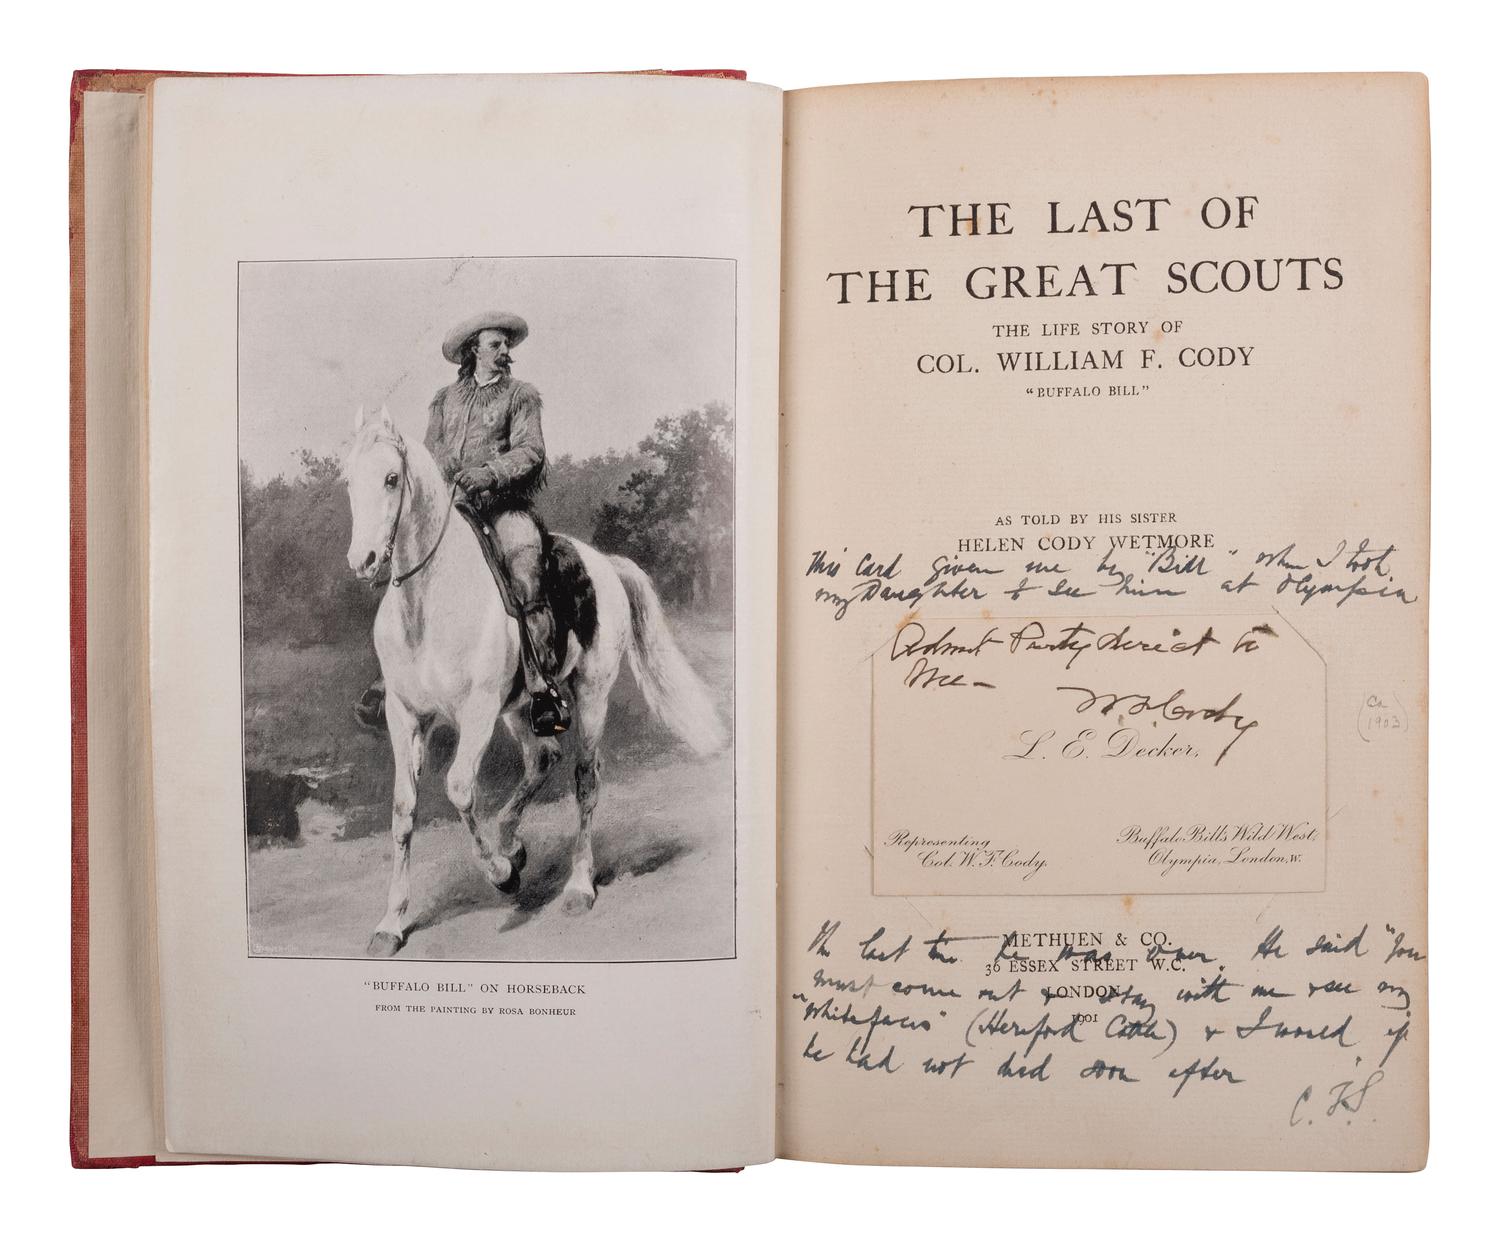 "BUFFALO BILL" ON HORSEBACK
FROM THE PAINTING BY ROSA BONHEUR
THE LAST OF
THE GREAT SCOUTS
THE LIFE STORY OF
COL. WILLIAM F. CODY
"BUFFALO BILL"
AS TOLD BY HIS SISTER
HELEN CODY WETMORE
This Card given me by "Bill" when I took
my Daughter to see him at Olympia
Admit Party direct to
Me-
W. F. Cody
L. E. Decker,
Representing
Col. W. F. Cody.
Buffalo Bill's Wild West,
Olympia, London, W.
(Ca
1903)
METHUEN & CO.
36 ESSEX STREET W.C.
LONDON
1901
The last time he was over. He said "You
must come out & stay with me & see my
"whitefaces" (Hereford Cattle) & I would if
he had not died soon after
C. F. S.